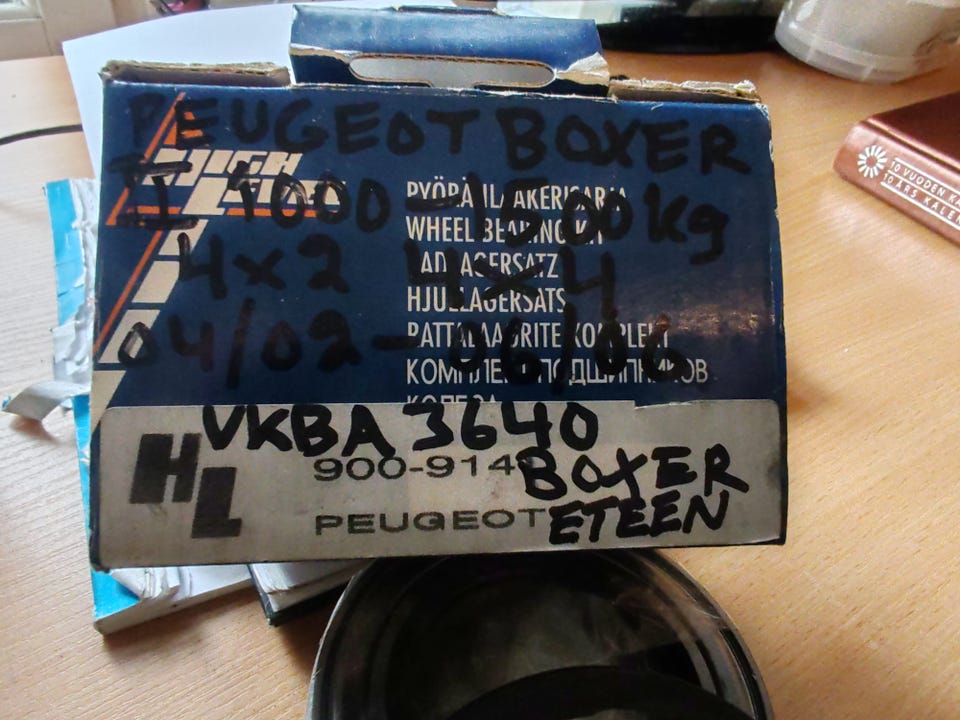 PEUGEOT BOXER
HIGH
I 1000-1500 kg
4x2 4x4
04/02-06/06
PYÖRÄNLAAKERISARJA
WHEEL BEARING KIT
RADLAGERSATZ
HJULLAGERSATS
RATTALAAGRITE KOMPLEKT
КОМПЛЕКТ ПОДШИПНИКОВ
КОЛЕСА
VKBA 3640
HL
900-914
BOXER
PEUGEOT
ETEEN
10 VUODEN KA
10 ÅRS KALEN